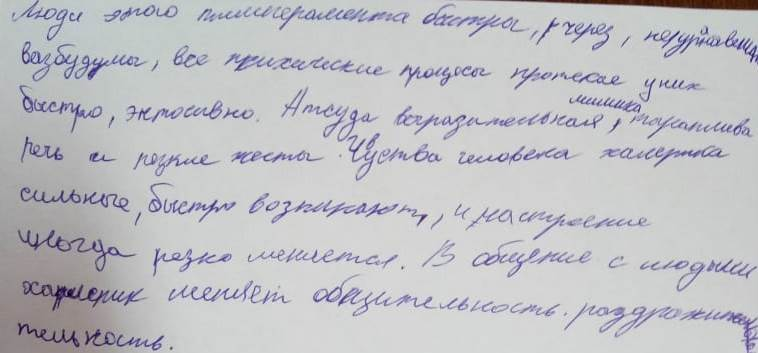 Люди этого темперамента быстры, через, неуравнавеш
возбудимы, все психические процесы протекае у них
быстро, энтосивно. Атсуда выразительная, мимика, тораплива
речь и резкие жесты. Чуства человека халерика
сильные, быстро возникают, и настроение
иногда резко меняется. В общение с людьми
халерик меняет общительность. раздражи
тельность.